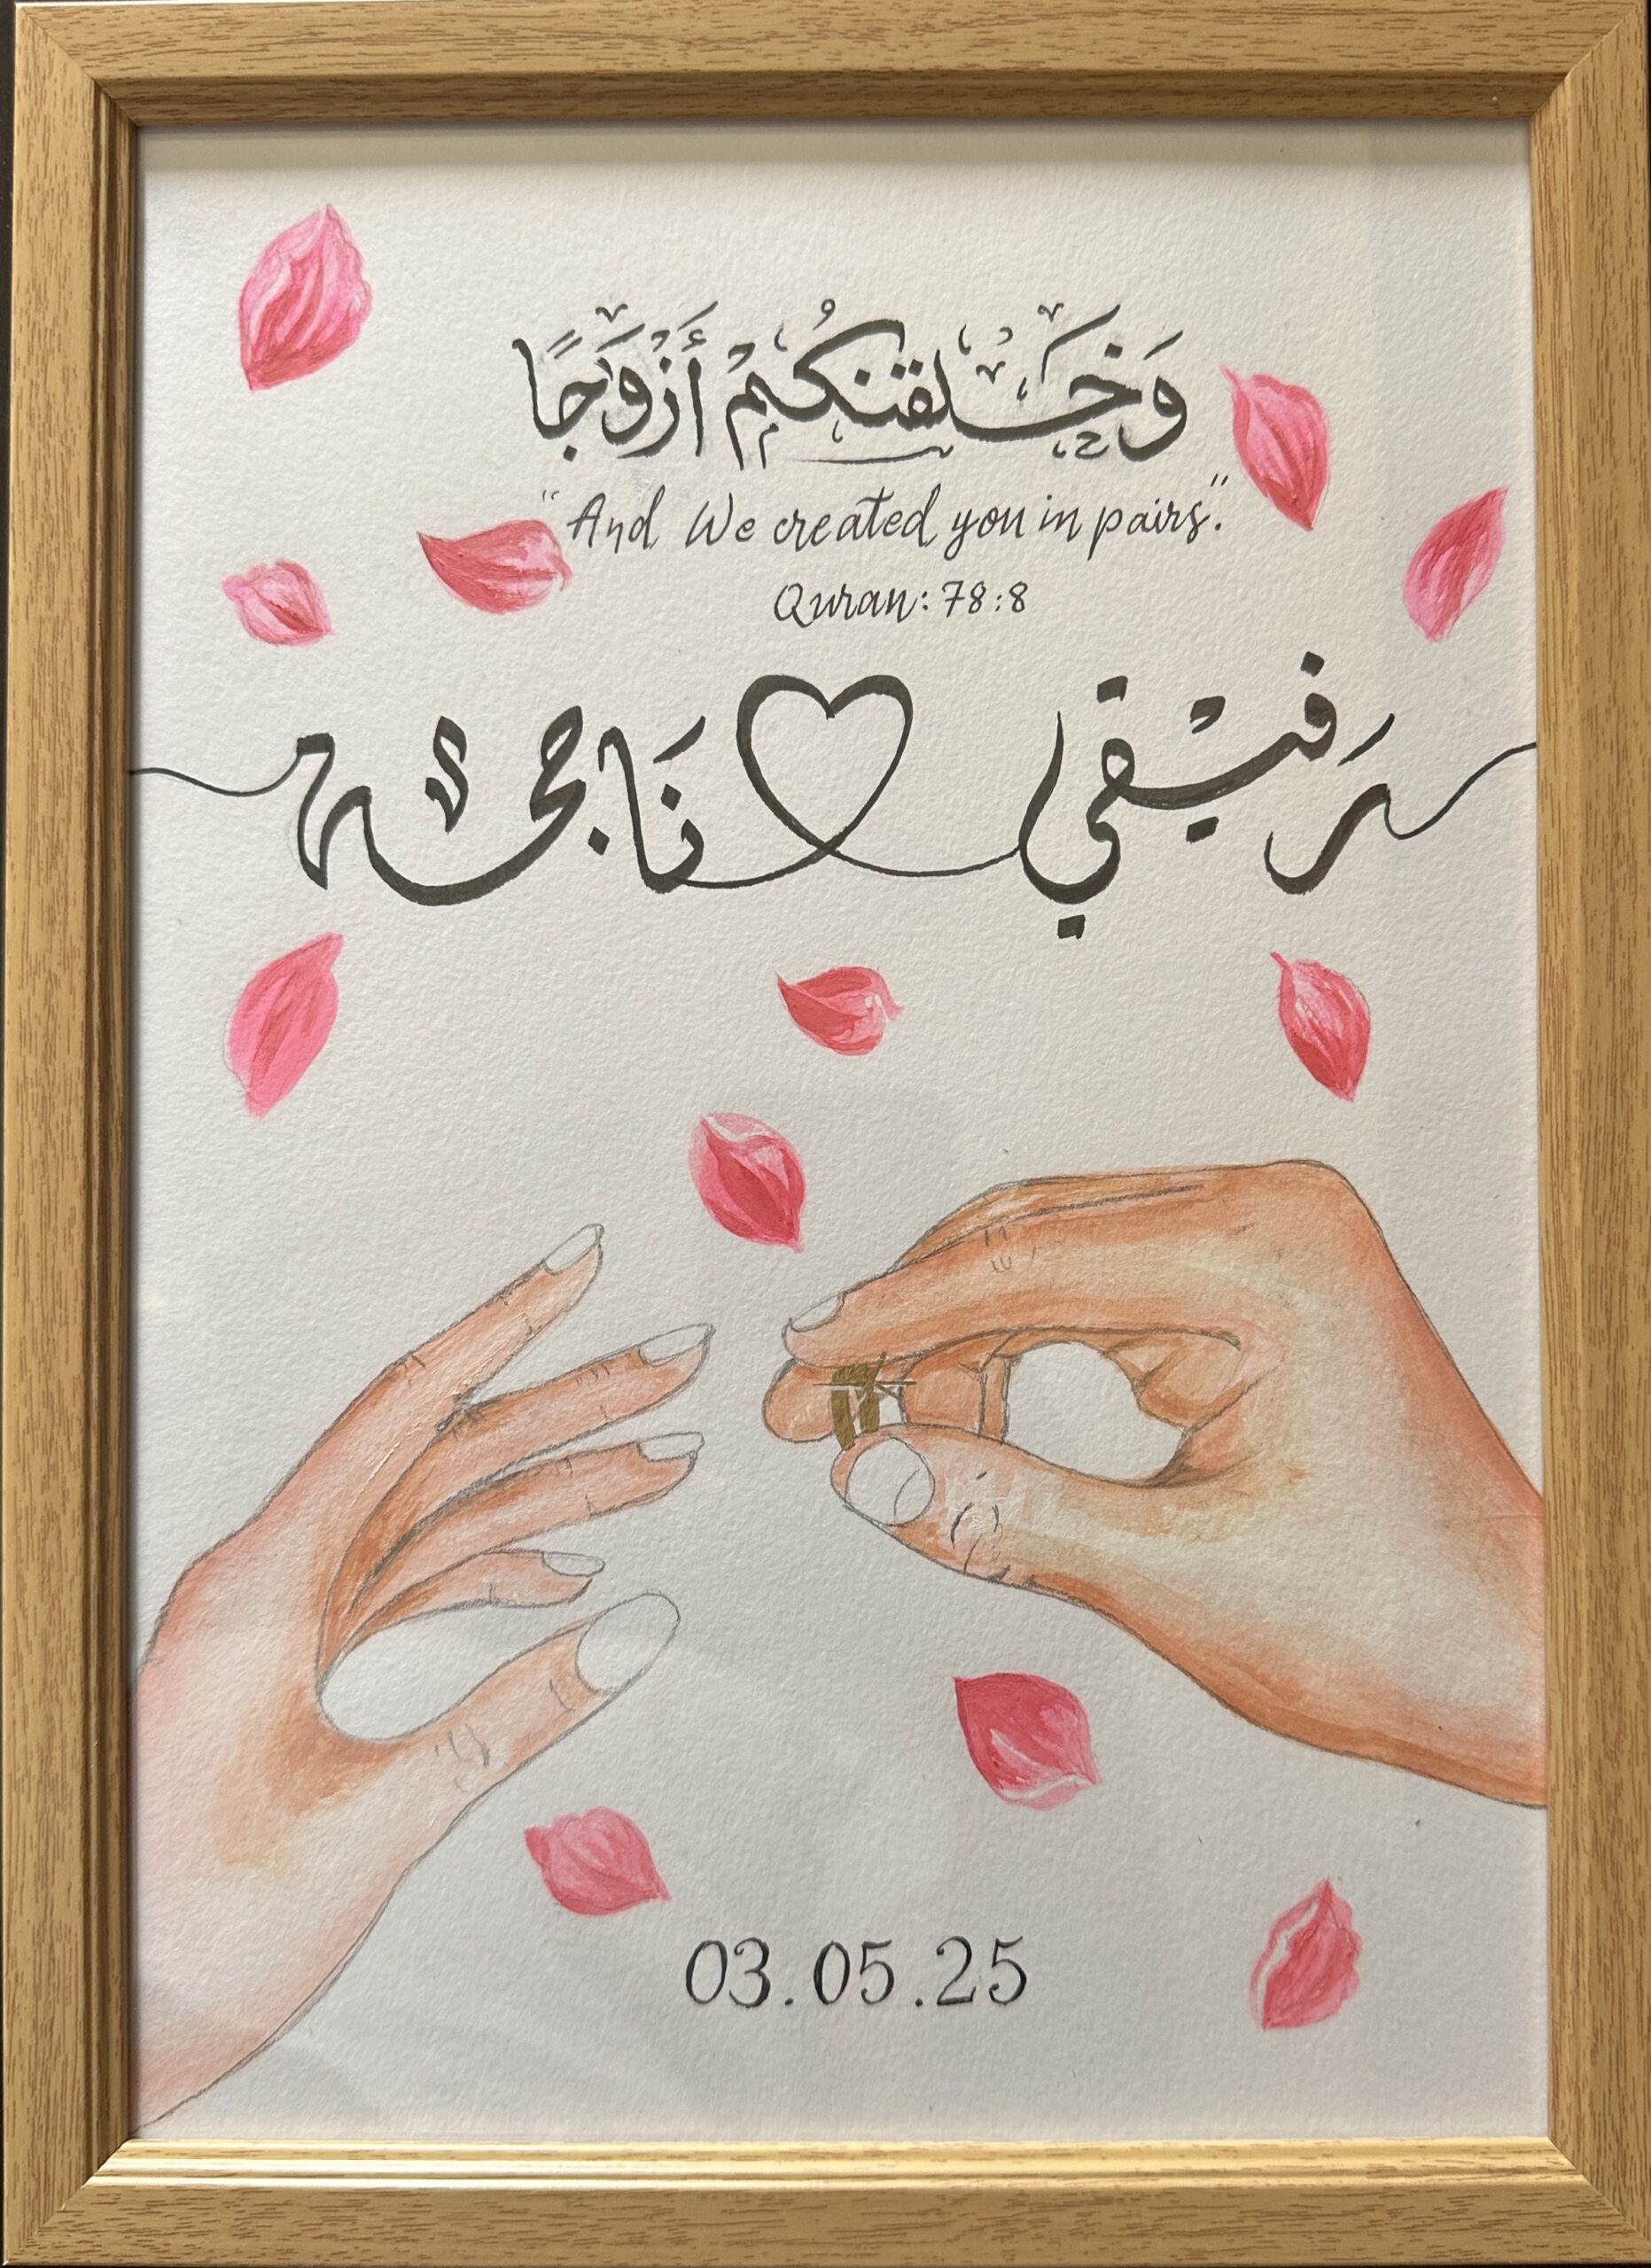 وَخَلَقْنَٰكُمْ أَزْوَٰجًا
"And We created you in pairs."
Quran: 78:8
رَفِيْقي نَاجحة
03.05.25